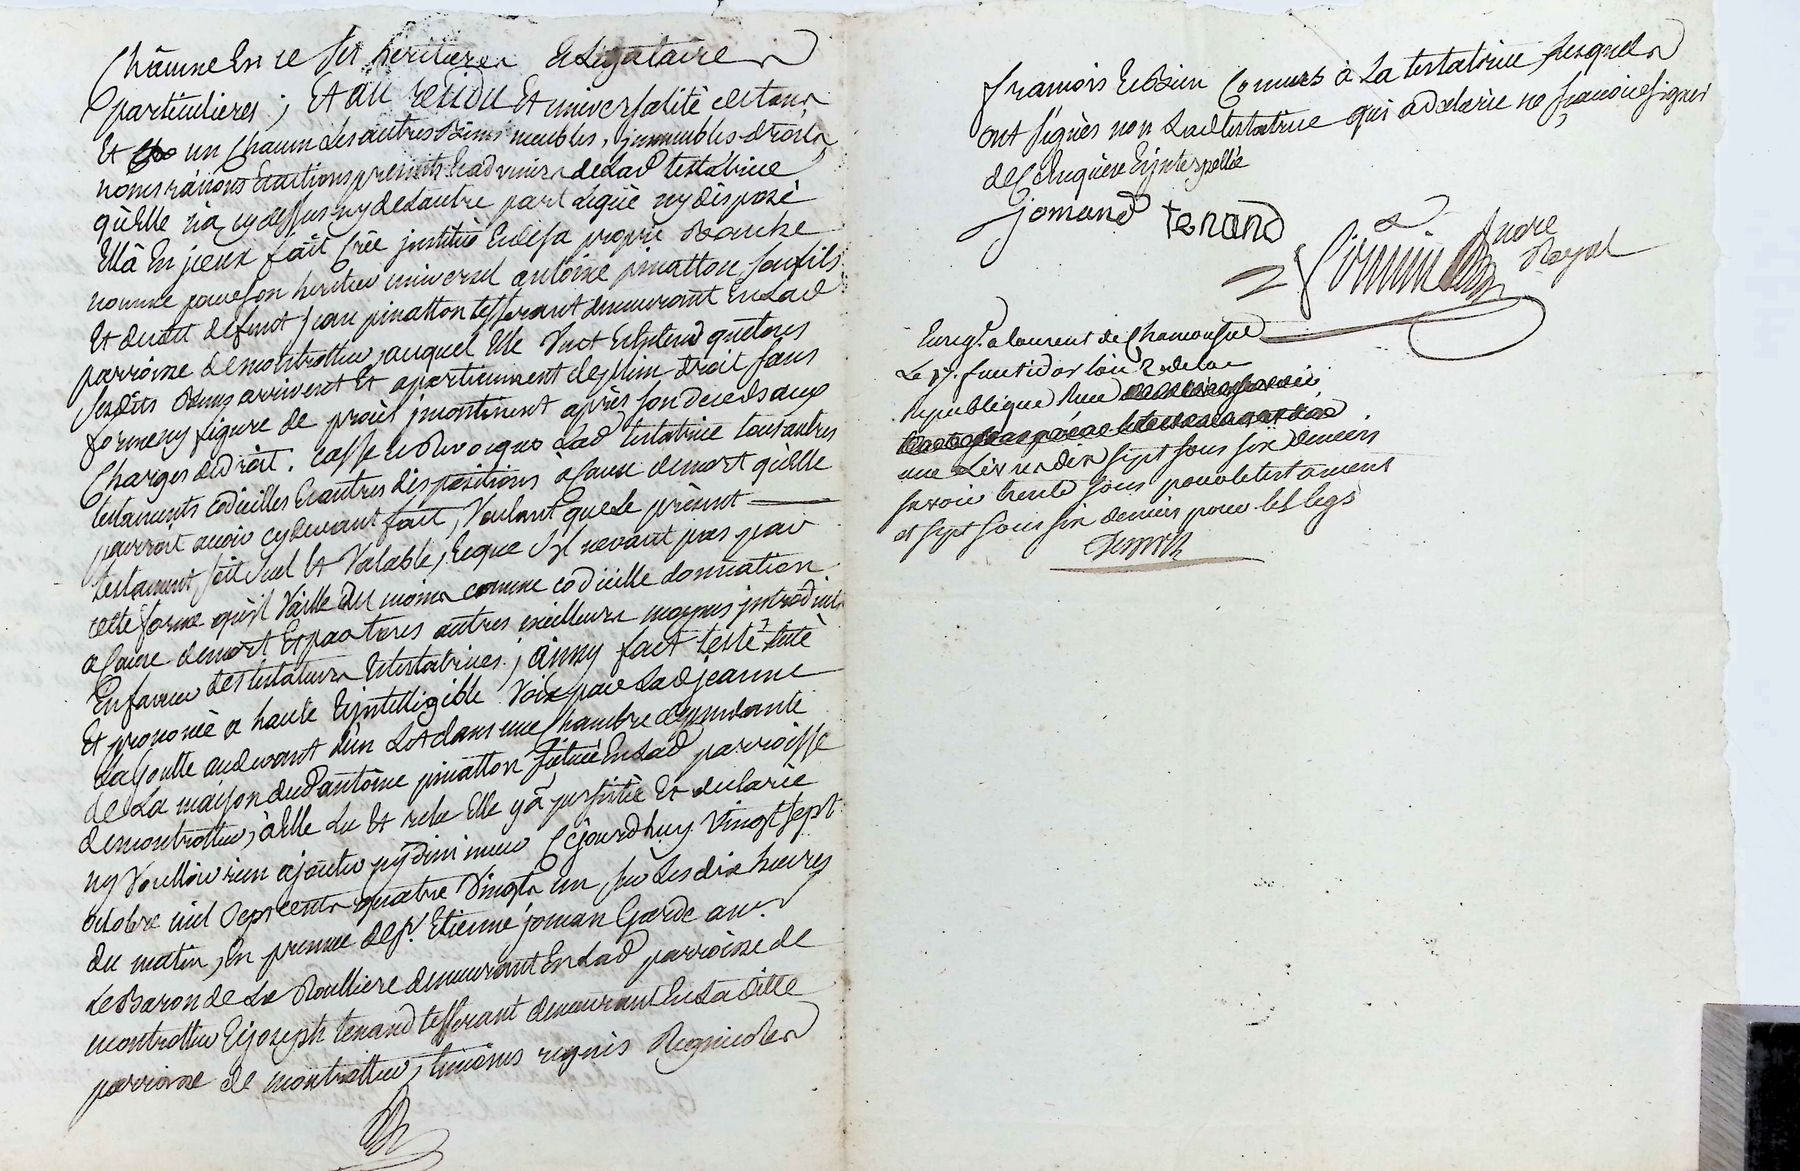 Chacune En ce Ses heritieres Et Legataires
particulieres ; Et au residu Et universalité de tous
Et un Chacun Les autres Biens meubles, Immeubles droits
noms raisons Et actions presents Et advenir de Lad testatrice
qu'elle n'a cy dessus ny de Lautre part Legüé ny disposé
Ella En jceux fait Crée jnstitue Et de sa propre Bouche
nomme pour son heritier universel antoine pinatton son fils
Et dudit defunt jean pinatton tisserant demeurant En Lad
parroisse de montrottier, auquel Elle Veut Et Entend que tous
Sesdits Biens arrivent Et apartiennent de plein droit Sans
forme ny figure de procès jncontinent après Son deceds aux
Charges de droit. Casse Et Revocque Lad testatrice tous autres
testaments Codicilles Et autres dispositions à Cause de mort qu'elle
pourroit avoir cy devant fait, Voulant que Le present
testament soit seul Et Valable, Et que s'il ne vaut pas par
cette forme qu'il Vaille du moins comme codicille donnation
a Cause de mort Et par tous autres meilleurs moyens jntroduits
En faveur des testateurs Et testatrices ; ainsy fait testé dicté
Et prononcé a haute Et jntelligible Voix par Lad jeanne
La joutte au devant d'un Lit dans une Chambre dependante
de La maison dud antoine pinatton Située En Lad parroisse
de montrottier, à Elle Lu Et relu Elle y a persisté Et declaré
ny Voulloir rien ajouter ny diminuer Cejourd'huy Vingt Sept
octobre mil Sept cents quatre Vingts un, sur Les dix heures
du matin, En presence de Sr. Etienne joman Garde de mr.
Le Baron de La Roulliere demeurant En Lad parroisse de
montrottier Et joseph tenand tisserant demeurant En La ditte
parroisse de montrottier, temoins requis Regnicoles
francois Et Bien Connus à La testatrice Lesquels
ont signés non Lad testatrice qui a declarée ne scavoir signer
de Ce Enquise Et jnterpellée
jomand tenand
nore
Royal
Enreg. a laurent de Chamousset
Le 17. fructidor l'an 2 de la
republique Reçu
une Livre dix Sept Sous Six deniers
Savoir trente Sous pour le testament
et Sept Sous Six deniers pour les legs